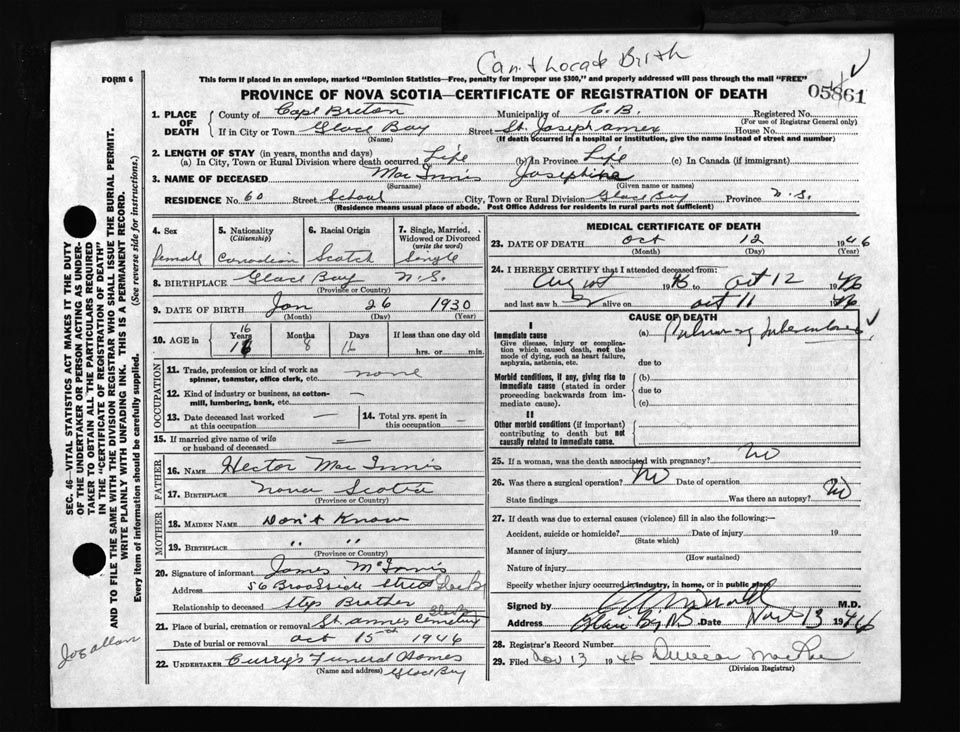 Can't Locate Birth
FORM 6
This form if placed in an envelope, marked "Dominion Statistics—Free, penalty for improper use $300," and properly addressed will pass through the mail "FREE"
05861
PROVINCE OF NOVA SCOTIA—CERTIFICATE OF REGISTRATION OF DEATH
1. PLACE OF DEATH County of Cape Breton Municipality of C.B. Registered No.
(For use of Registrar General only)
If in City or Town Glace Bay Street St. Joseph annex House No.
(Name) (If death occurred in a hospital or institution, give the name instead of street and number)
2. LENGTH OF STAY (in years, months and days)
(a) In City, Town or Rural Division where death occurred Life (b) In Province Life (c) In Canada (if immigrant)
3. NAME OF DECEASED Mac Innis Josephine
(Surname) (Given name or names)
RESIDENCE No. 60 Street School City, Town or Rural Division Glace Bay Province N.S.
(Residence means usual place of abode. Post Office Address for residents in rural parts not sufficient)
4. Sex
female
5. Nationality
(Citizenship)
Canadian
6. Racial Origin
Scotch
7. Single, Married, Widowed or Divorced
(write the word)
Single
8. BIRTHPLACE Glace Bay N.S.
(Province or Country)
9. DATE OF BIRTH Jan 26 1930
(Month) (Day) (Year)
10. AGE in
16
Years Months Days If less than one day old
16 8
hrs. or min.
OCCUPATION
11. Trade, profession or kind of work as spinner, teamster, office clerk, etc. none
12. Kind of industry or business, as cotton-mill, lumbering, bank, etc. —
13. Date deceased last worked at this occupation — 14. Total yrs. spent in this occupation —
15. If married give name of wife or husband of deceased
FATHER
16. NAME Hector Mac Innis
17. BIRTHPLACE Nova Scotia
(Province or Country)
MOTHER
18. MAIDEN NAME Don't Know
19. BIRTHPLACE " "
(Province or Country)
20. Signature of informant James McInnis
Address 56 Brookside Street Glace B
Relationship to deceased Step Brother
21. Place of burial, cremation or removal St. Annes Cemetery Glace
Date of burial or removal Oct 15th 1946
22. UNDERTAKER Curry's Funeral Homes
(Name and address) Glace Bay
MEDICAL CERTIFICATE OF DEATH
23. DATE OF DEATH Oct 12 1946
(Month) (Day) (Year)
24. I HEREBY CERTIFY that I attended deceased from:
August 1946 to Oct 12 1946
and last saw h alive on Oct 11 1946
CAUSE OF DEATH
I
Immediate cause (a) Pulmonary Tuberculosis
Give disease, injury or complication which caused death, not the mode of dying, such as heart failure, asphyxia, asthenia, etc.
due to
Morbid conditions, if any, giving rise to immediate cause (stated in order proceeding backwards from immediate cause).
(b)
due to
(c)
II
Other morbid conditions (if important) contributing to death but not causally related to immediate cause.
25. If a woman, was the death associated with pregnancy? No
26. Was there a surgical operation? No Date of operation
State findings Was there an autopsy? No
27. If death was due to external causes (violence) fill in also the following:—
Accident, suicide or homicide? Date of injury 19
(State which)
Manner of injury
(How sustained)
Nature of injury
Specify whether injury occurred in industry, in home, or in public place
Signed by M.D.
Address Glace Bay NS Date Nov 13 1946
28. Registrar's Record Number
29. Filed Nov 13 1946 Duncan MacRae
(Division Registrar)
SEC. 46—VITAL STATISTICS ACT MAKES IT THE DUTY
OF THE UNDERTAKER OR PERSON ACTING AS UNDER-
TAKER TO OBTAIN ALL THE PARTICULARS REQUIRED
IN THE "CERTIFICATE OF REGISTRATION OF DEATH"
AND TO FILE THE SAME WITH THE DIVISION REGISTRAR WHO SHALL ISSUE THE BURIAL PERMIT.
WRITE PLAINLY WITH UNFADING INK. THIS IS A PERMANENT RECORD.
Every item of information should be carefully supplied. (See reverse side for instructions.)